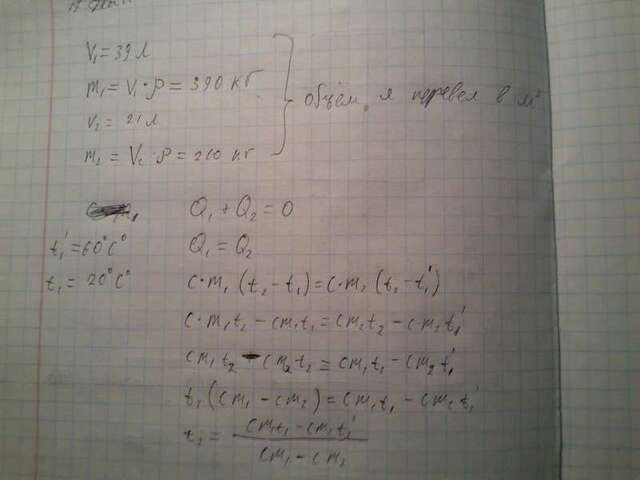 V₁ = 39 л
m₁ = V₁ · ρ = 390 кг
V₂ = 21 л
m₂ = V₂ · ρ = 210 кг
} объём, я перевел в м³
Q₁ + Q₂ = 0
t₁' = 60°C° Q₁ = Q₂
t₁ = 20°C° c·m₁ (t₂ - t₁) = c·m₂ (t₂ - t₁')
c·m₁t₂ - cm₁t₁ = cm₂t₂ - cm₂t₁'
cm₁t₂ - cm₂t₂ = cm₁t₁ - cm₂t₁'
t₂(cm₁ - cm₂) = cm₁t₁ - cm₂t₁'
t₂ = cm₁t₁ - cm₂t₁'
cm₁ - cm₂